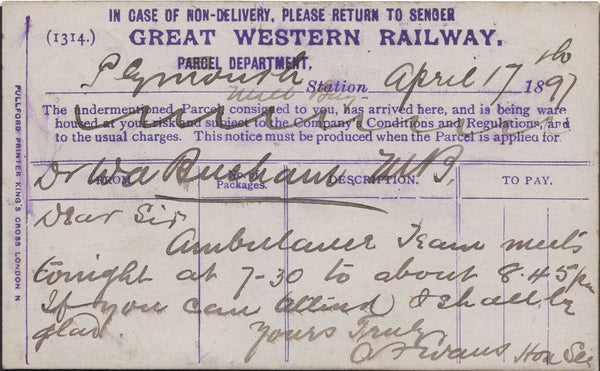 IN CASE OF NON-DELIVERY, PLEASE RETURN TO SENDER
(1314.) GREAT WESTERN RAILWAY.
PARCEL DEPARTMENT,
Plymouth Station April 17th 1897
The undermentioned Parcel consigned to you, has arrived here, and is being ware
housed at your risk and subject to the Company's Conditions and Regulations, and
to the usual charges. This notice must be produced when the Parcel is applied for.
Dr Buchan M.B.
FROM No. of Packages. DESCRIPTION. TO PAY.
Dear Sir
Ambulance Team meets
tonight at 7-30 to about 8.45 pm
If you can attend I shall be
glad.
Yours Truly
Evans Hon Sec
PULFORD PRINTER KING'S CROSS LONDON N